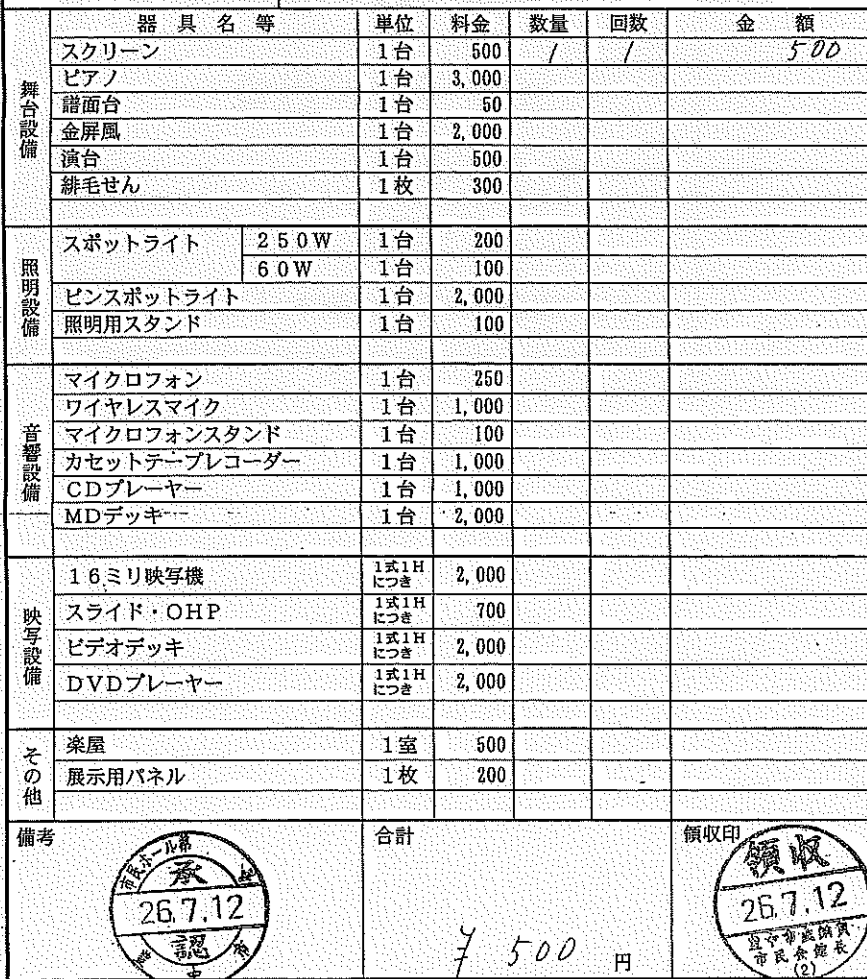 器具名等 単位 料金 数量 回数 金額
舞台設備
スクリーン 1台 500 1 1 500
ピアノ 1台 3,000
譜面台 1台 50
金屏風 1台 2,000
演台 1台 500
緋毛せん 1枚 300
照明設備
スポットライト 250W 1台 200
60W 1台 100
ピンスポットライト 1台 2,000
照明用スタンド 1台 100
音響設備
マイクロフォン 1台 250
ワイヤレスマイク 1台 1,000
マイクロフォンスタンド 1台 100
カセットテープレコーダー 1台 1,000
CDプレーヤー 1台 1,000
MDデッキ 1台 2,000
映写設備
16ミリ映写機 1式1Hにつき 2,000
スライド・OHP 1式1Hにつき 700
ビデオデッキ 1式1Hにつき 2,000
DVDプレーヤー 1式1Hにつき 2,000
その他
楽屋 1室 500
展示用パネル 1枚 200
備考
市民ホール
承
26.7.12
認
合計
¥ 500 円
領収印
領収
26.7.12
市民会館長
(2)